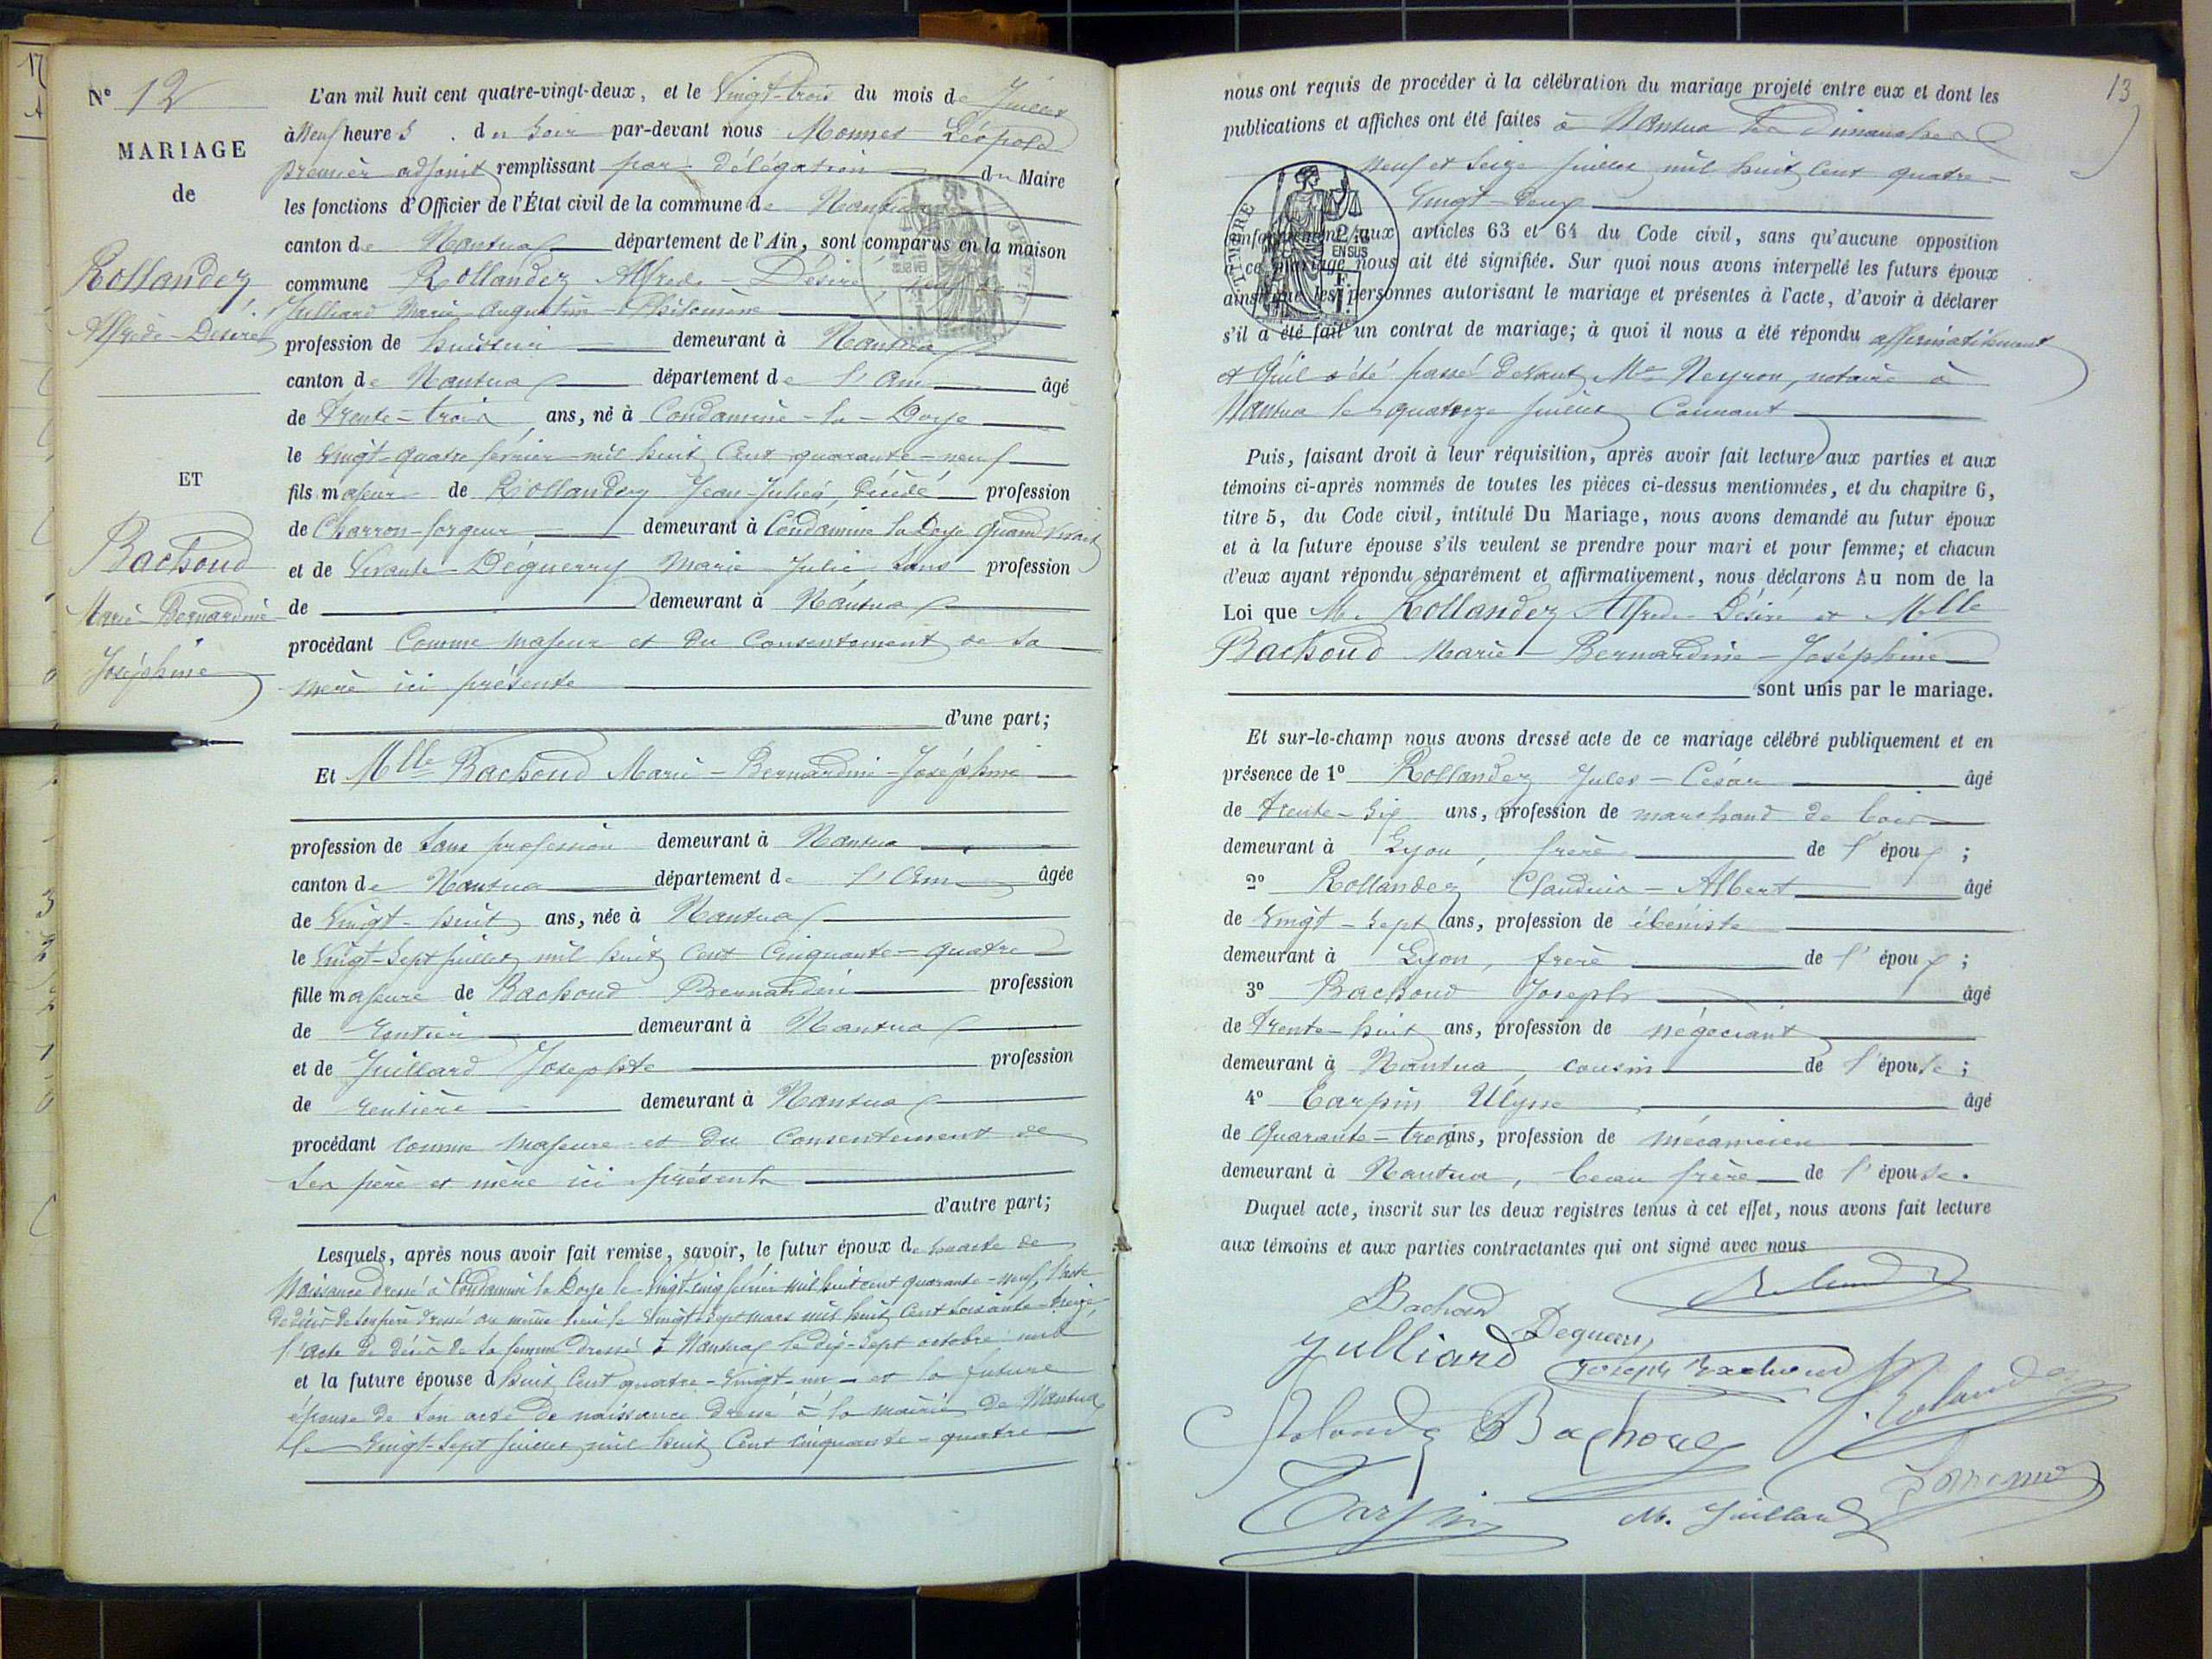 N° 12
MARIAGE
de
Rollandez
Alfrède-Désiré
ET
Bachoud
Marie-Bernardine
Joséphine
L'an mil huit cent quatre-vingt-deux, et le Vingt-trois du mois de Juillet
à Neuf heures du Soir par-devant nous Monnet Léopold
premier adjoint remplissant par délégation du Maire
les fonctions d'Officier de l'État civil de la commune de Nantua
canton de Nantua département de l'Ain, sont comparus en la maison
commune Rollandez Alfrède-Désiré, veuf de
Julliard Marie-Augustine-Philomène
profession de huissier demeurant à Nantua
canton de Nantua département de l'Ain âgé
de Trente-trois ans, né à Condamine-la-Doye
le Vingt-quatre février mil huit Cent quarante-neuf
fils majeur de Rollandez Jean-Julien, décédé profession
de Charron-forgeur demeurant à Condamine la Doye quand vivait
et de Vivante Déguerry Marie Julie Sans profession
de demeurant à Nantua
procédant Comme majeur et du Consentement de Sa
mère ici présente
d'une part;
Et Mlle Bachoud Marie-Bernardine-Joséphine
profession de Sans profession demeurant à Nantua
canton de Nantua département de l'Ain âgée
de Vingt-huit ans, née à Nantua
le Vingt-Sept Juillet mil huit Cent Cinquante-quatre
fille majeure de Bachoud Bernardin profession
de rentier demeurant à Nantua
et de Juillard Josephte profession
de rentière demeurant à Nantua
procédant comme majeure et du Consentement de
Ses père et mère ici présents
d'autre part;
Lesquels, après nous avoir fait remise, savoir, le futur époux de son acte de
Naissance dressé à Condamine la Doye le vingt-cinq février mil huit cent quarante-neuf, l'acte
de décès de son père dressé au même lieu le Vingt-Sept mars mil huit Cent soixante-treize,
l'acte de décès de Sa femme dressé à Nantua le dix-Sept octobre mil
et la future épouse d huit Cent quatre-Vingt-un et la future
épouse de Son acte de naissance dressé à la mairie de Nantua
le Vingt-Sept Juillet mil huit Cent cinquante-quatre
13
nous ont requis de procéder à la célébration du mariage projeté entre eux et dont les
publications et affiches ont été faites à Nantua les dimanches
Neuf et Seize Juillet mil huit Cent quatre-
Vingt-Deux
TIMBRE
2/10
EN SUS
conformément aux articles 63 et 64 du Code civil, sans qu'aucune opposition
à ce mariage nous ait été signifiée. Sur quoi nous avons interpellé les futurs époux
ainsi que les personnes autorisant le mariage et présentes à l'acte, d'avoir à déclarer
s'il a été fait un contrat de mariage; à quoi il nous a été répondu affirmativement
et qu'il a été passé devant Me Neyron, notaire à
Nantua le quatorze Juillet Courant
Puis, faisant droit à leur réquisition, après avoir fait lecture aux parties et aux
témoins ci-après nommés de toutes les pièces ci-dessus mentionnées, et du chapitre 6,
titre 5, du Code civil, intitulé Du Mariage, nous avons demandé au futur époux
et à la future épouse s'ils veulent se prendre pour mari et pour femme; et chacun
d'eux ayant répondu séparément et affirmativement, nous déclarons Au nom de la
Loi que M. Rollandez Alfrède-Désiré et Mlle
Bachoud Marie-Bernardine-Joséphine
sont unis par le mariage.
Et sur-le-champ nous avons dressé acte de ce mariage célébré publiquement et en
présence de 1° Rollandez Jules-César âgé
de Trente-Six ans, profession de marchand de bois
demeurant à Lyon, frère de l'époux;
2° Rollandez Claudius-Albert âgé
de Vingt-Sept ans, profession de ébéniste
demeurant à Lyon, frère de l'époux;
3° Bachoud Joseph âgé
de Trente-huit ans, profession de négociant
demeurant à Nantua, cousin de l'épouse;
4° Carpin Ulysse âgé
de Quarante-trois ans, profession de mécanicien
demeurant à Nantua, beau frère de l'épouse.
Duquel acte, inscrit sur les deux registres tenus à cet effet, nous avons fait lecture
aux témoins et aux parties contractantes qui ont signé avec nous
Bachoud
Julliard
Joseph Bachoud
Bachoud
Carpin
M. Juillard